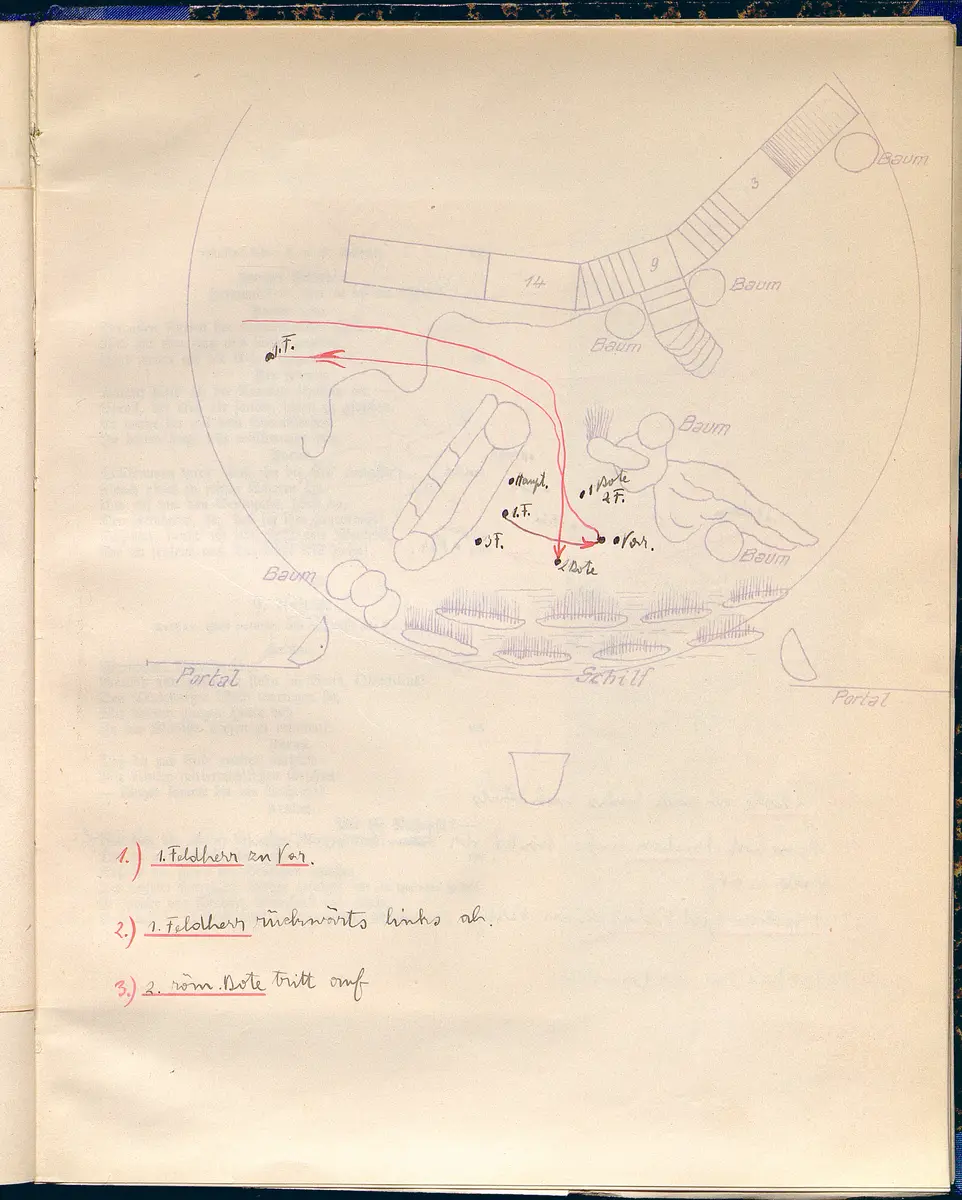 Baum
3
9
14
Baum
Baum
1.F.
Baum
Haupt.
1 Bote
2F.
1.F.
3F.
Var.
2 Bote
Baum
Baum
Portal
Schilf
Portal
1.) 1. Feldherr zu Var.
2.) 1. Feldherr rückwärts links ab.
3.) 2. röm. Bote tritt auf